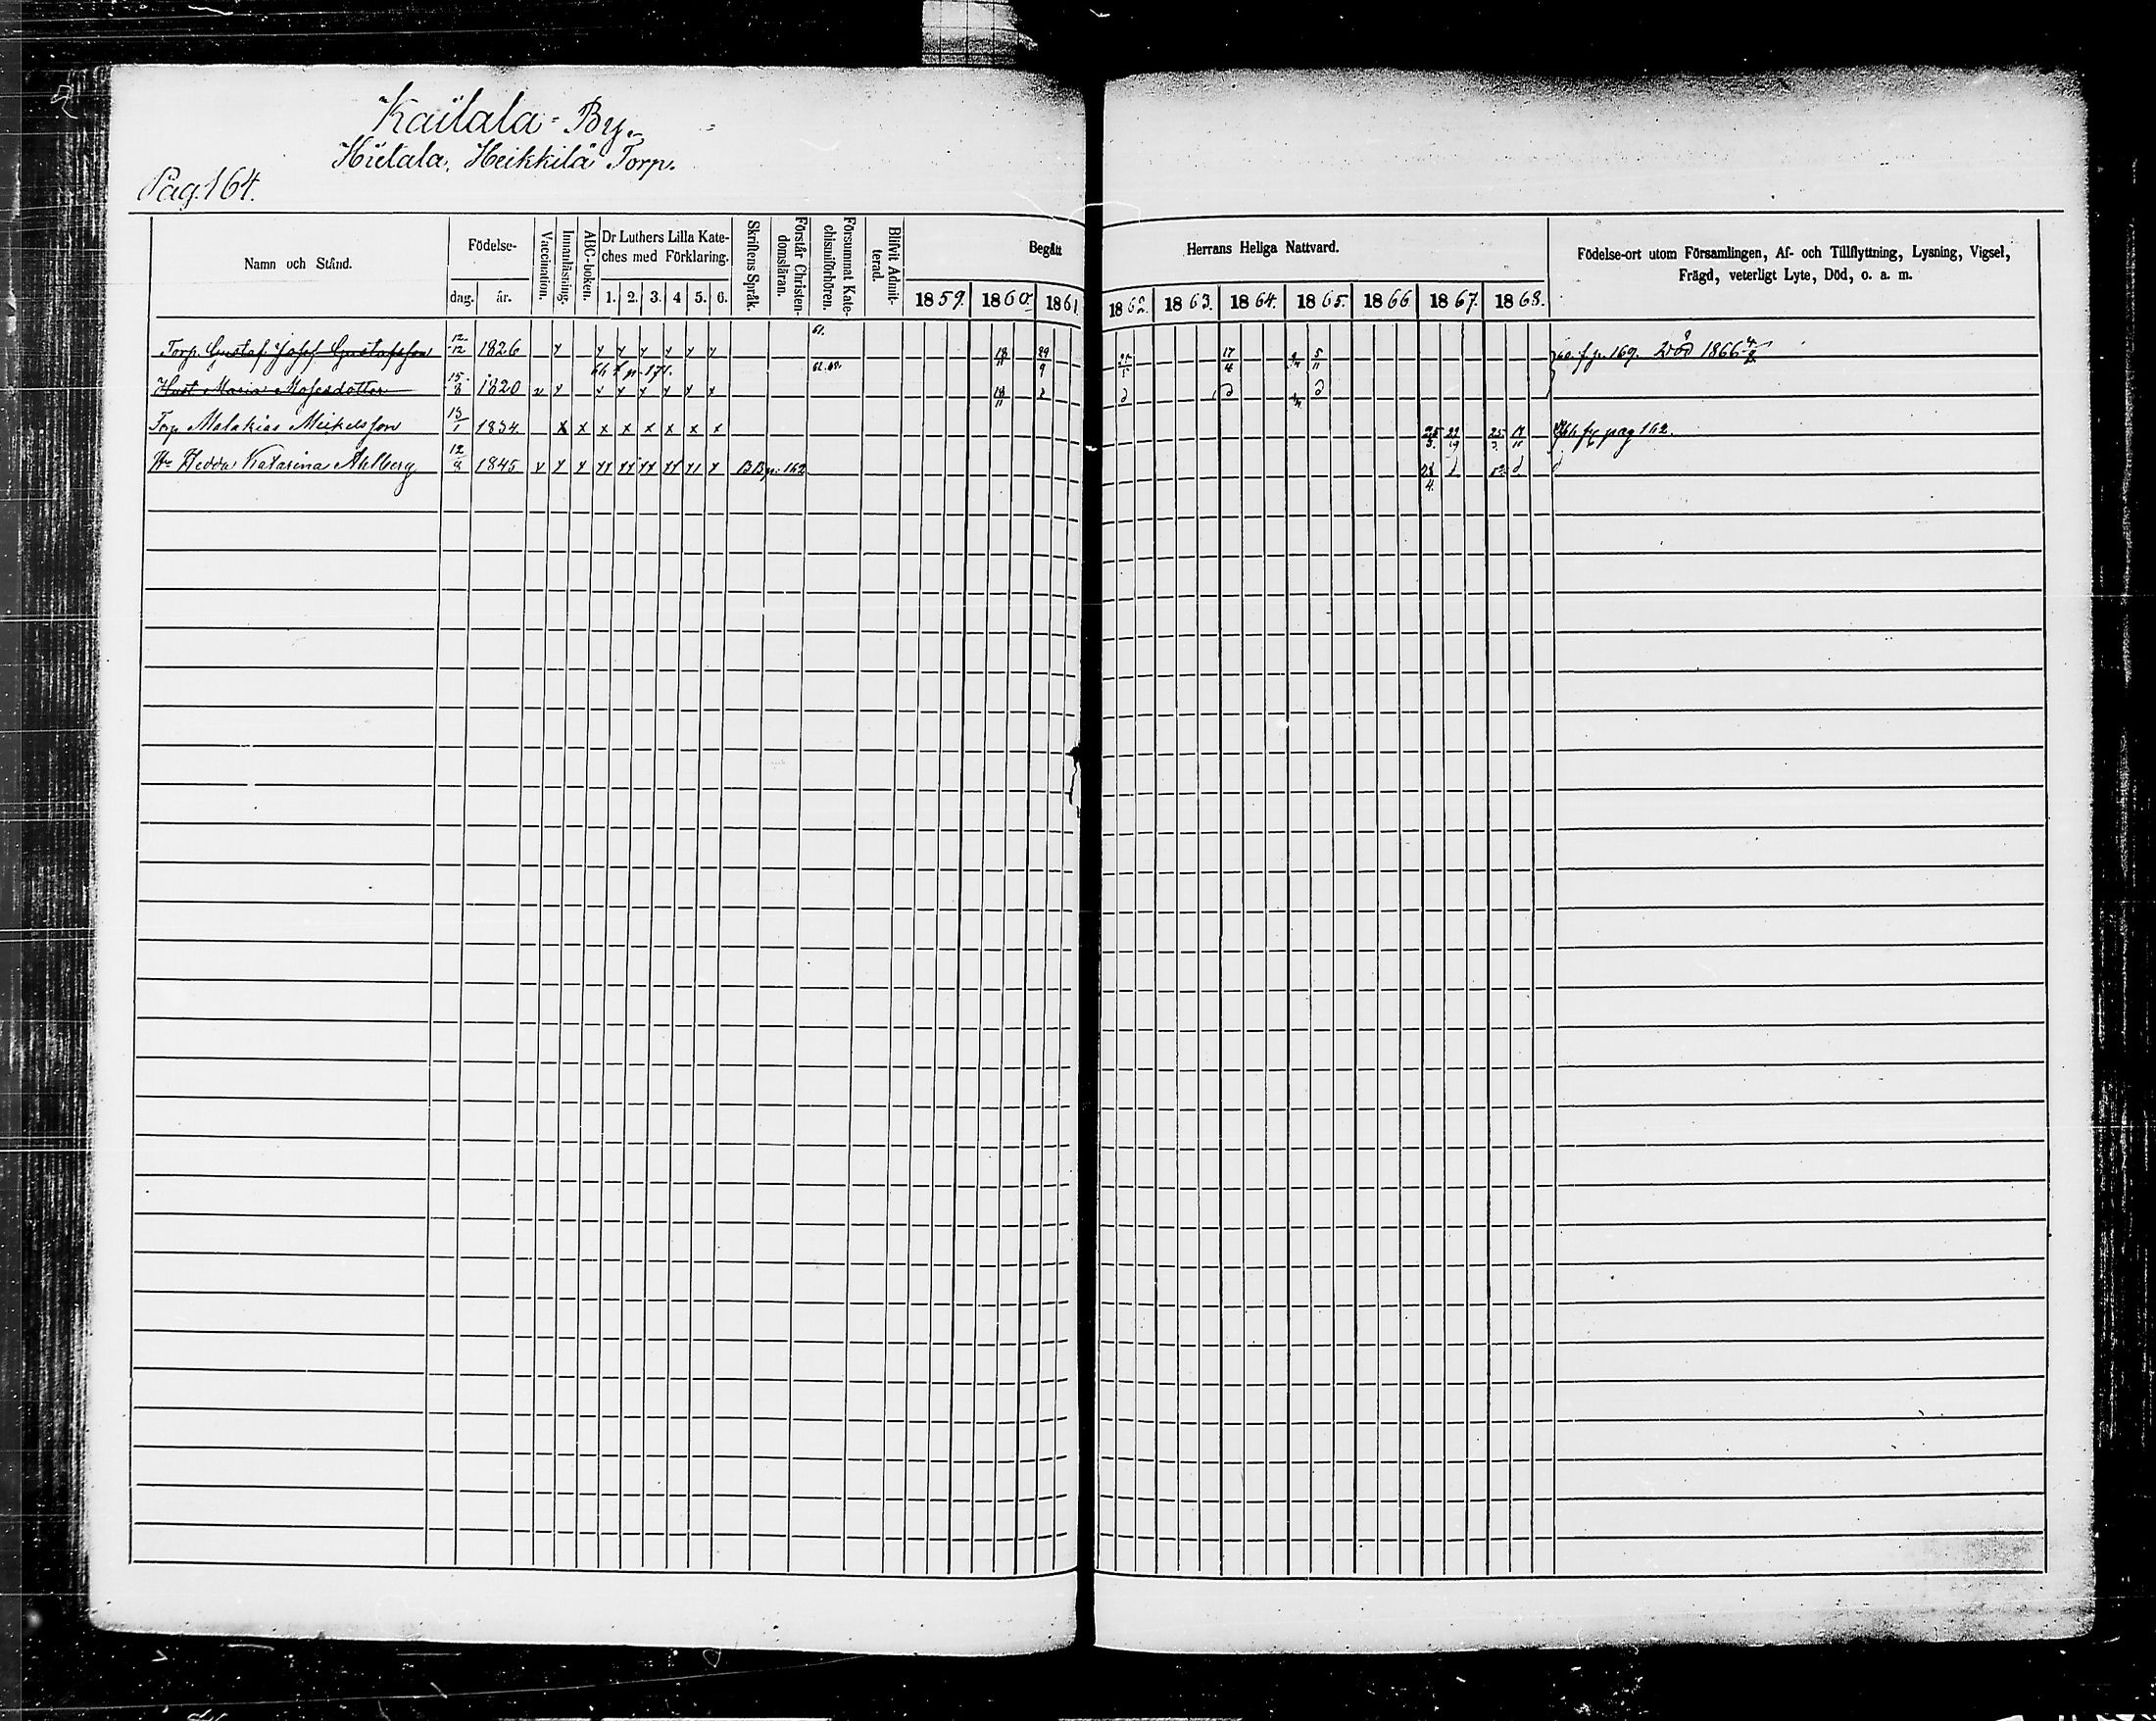 Kaitala By.
Hiitala, Heikkilä Torp.
Pag. 164.
Namn och Stånd.
Födelse-
dag. år.
Vaccination.
Innanläsning.
ABC-boken.
Dr Luthers Lilla Kate-
ches med Förklaring.
1. 2. 3. 4 5. 6.
Skriftens Språk.
Förstår Christen-
domsläran.
Försummat Kate-
chismiförhören.
Blifvit Admit-
terad.
Begått Herrans Heliga Nattvard.
1859. 1860. 1861. 1862. 1863. 1864. 1865. 1866 1867. 1868.
Födelse-ort utom Församlingen, Af- och Tillflyttning, Lysning, Vigsel,
Frägd, veterligt Lyte, Död, o. a. m.
Torp. Gustaf Josef Gustafsson 12/12 1826 61. 18/11 29/9 17/4 5/11 f. p. 169. Död 1866
Hust. Maria Mosesdotter 15/8 1820 v p. 171. 61. 18/11
Torp Malakias Mickelsson 13/1 1834 x x x x x x x x pag 162.
Hu Hedda Katarina Ahlberg 12/8 1845 BB p. 162